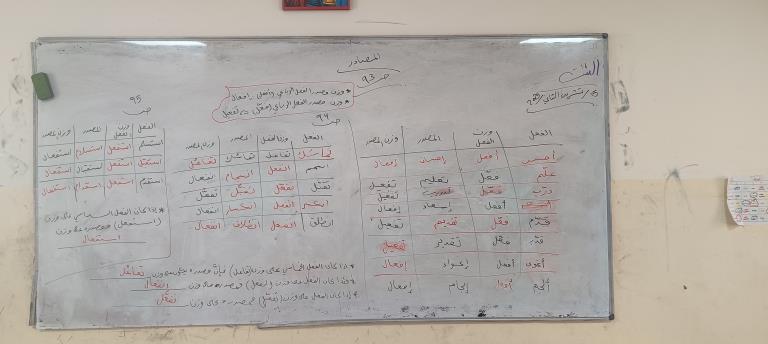 المصادر
السبت
ص ٩٣
* وزن مصدر الفعل الرباعي (أفعل) إفعال
* وزن مصدر الفعل الرباعي (فعّل) تفعيل
الفعل وزن الفعل المصدر وزن المصدر
أفعل إفعال
علّم فعّل تعليم تفعيل
درّب فعّل تدريب تفعيل
أفعل إسعاد إفعال
قدّم فعّل تقديم تفعيل
قدّر فعّل تقدير تفعيل
أفعل إفعال
إفعال
ص ٩٤
الفعل وزن الفعل المصدر وزن المصدر
تفاعل تفاعل
انسجم انفعل انسجام انفعال
تفعّل تفعّل
انكسر انفعل انكسار انفعال
انطلق انفعل انطلاق انفعال
* إذا كان الفعل الخماسي على وزن (تفاعل) فإنّ مصدره على وزن تفاعُل
* وإذا كان الفعل على وزن (انفعل) فمصدره على وزن انفعال
* إذا كان الفعل على وزن (تفعّل) فمصدره على وزن تفعُّل
ص ٩٥
الفعل وزن الفعل المصدر وزن المصدر
استسلم استفعل استسلام استفعال
استقبل استفعل استقبال استفعال
استفعل استفعال
* إذا كان الفعل السداسي على وزن
(استفعل) فمصدره على وزن
استفعال